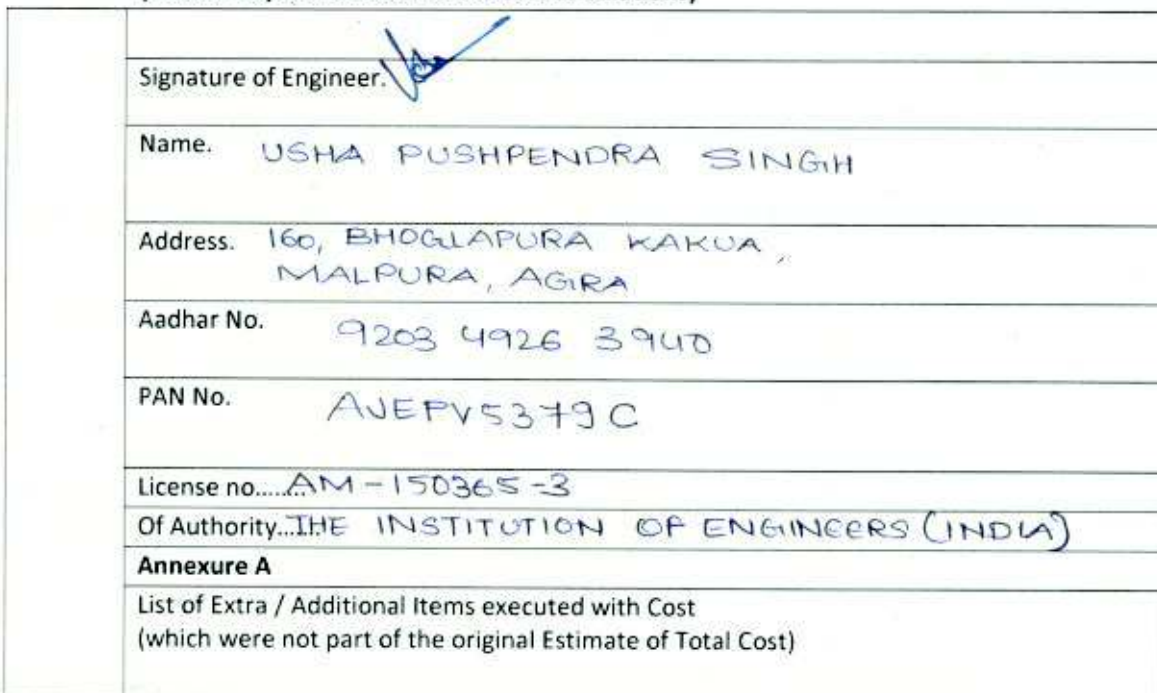 Signature of Engineer.
Name. USHA PUSHPENDRA SINGH
Address. 160, BHOGLAPURA KAKUA,
MALPURA, AGRA
Aadhar No. 9203 4926 3940
PAN No. AJEPV5379C
License no........AM-150365-3
Of Authority...THE INSTITUTION OF ENGINEERS (INDIA)
Annexure A
List of Extra / Additional Items executed with Cost
(which were not part of the original Estimate of Total Cost)